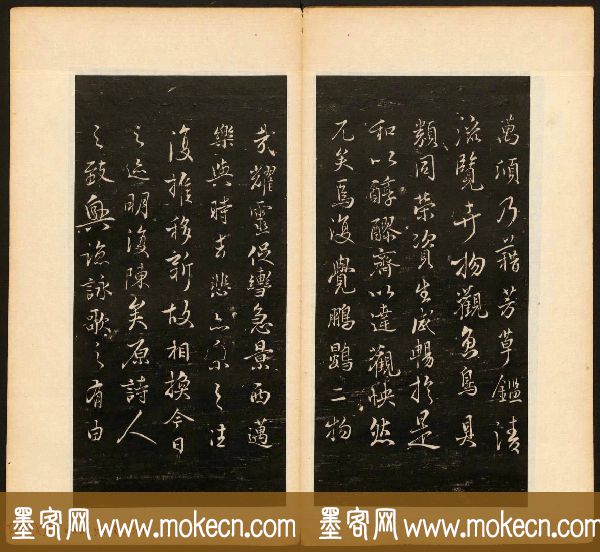 萬頃乃藉芳草鑑清
流覽卉物觀魚鳥具
類同榮資生咸暢於是
和以醇醪齊以達觀快然
兀矣焉復覺鵬鷃二物
哉耀靈促轡急景西邁
樂與時去悲亦系之往
復推移新故相換今日
之迹明復陳矣原詩人
之致興諒詠歌之有由
墨客网 www.mokecn.com 墨客网 www.mokecn.com